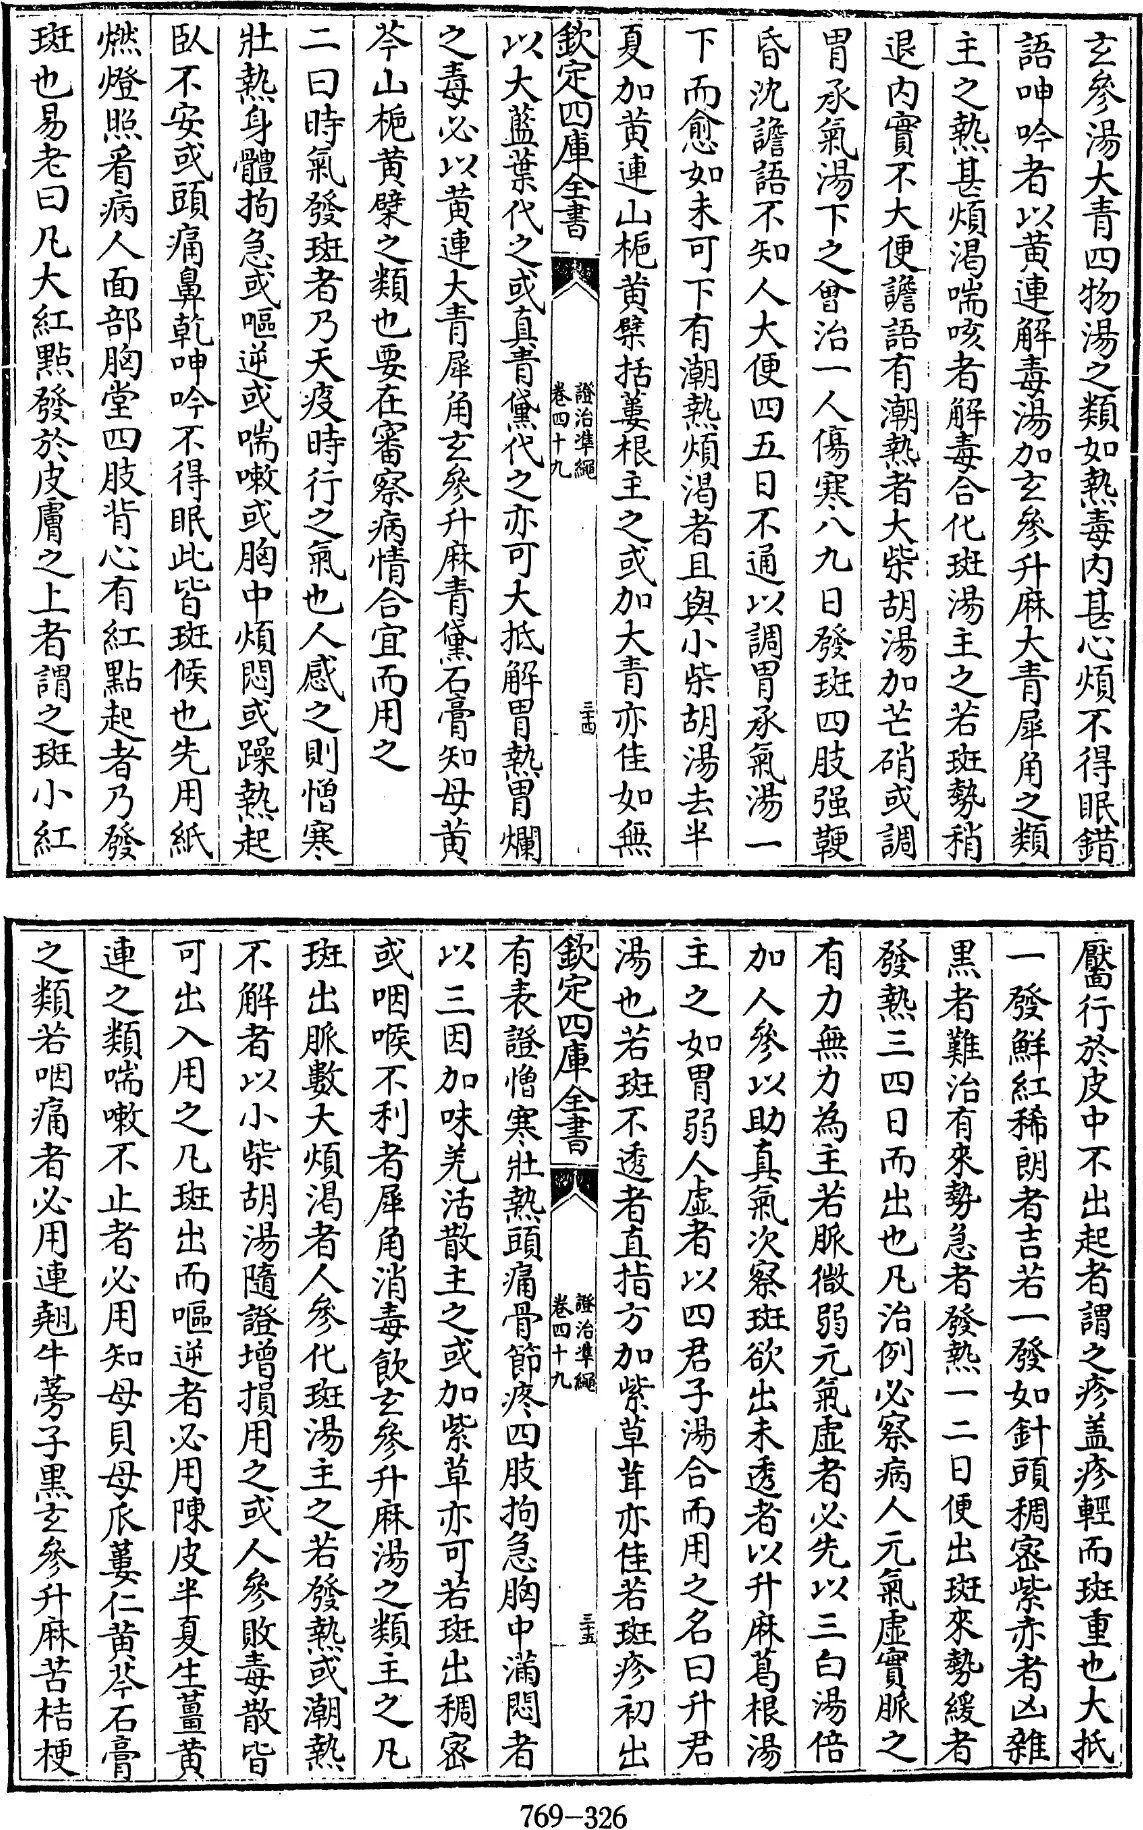 玄參湯大青四物湯之類如熱毒内甚心煩不得眠錯
語呻吟者以黄連解毒湯加玄參升麻大青犀角之類
主之熱甚煩渴喘咳者解毒合化斑湯主之若斑勢稍
退内實不大便譫語有潮熱者大柴胡湯加芒硝或調
胃承氣湯下之曾治一人傷寒八九日發斑四肢强鞕
昏沈譫語不知人大便四五日不通以調胃承氣湯一
下而愈如未可下有潮熱煩渴者且與小柴胡湯去半
夏加黄連山梔黄檗括蔞根主之或加大青亦佳如無
欽定四庫全書
證治準繩
卷四十九
三十四
以大藍葉代之或真青黛代之亦可大抵解胃熱胃爛
之毒必以黄連大青犀角玄參升麻青黛石膏知母黄
芩山梔黄檗之類也要在審察病情合宜而用之
二曰時氣發斑者乃天疫時行之氣也人感之則憎寒
壯熱身體拘急或嘔逆或喘嗽或胸中煩悶或躁熱起
臥不安或頭痛鼻乾呻吟不得眠此皆斑候也先用紙
燃燈照看病人面部胸堂四肢背心有紅點起者乃發
斑也易老曰凡大紅點發於皮膚之上者謂之斑小紅
靨行於皮中不出起者謂之疹盖疹輕而斑重也大抵
一發鮮紅稀朗者吉若一發如針頭稠密紫赤者凶雜
黑者難治有來勢急者發熱一二日便出斑來勢緩者
發熱三四日而出也凡治例必察病人元氣虛實脈之
有力無力為主若脈微弱元氣虛者必先以三白湯倍
加人參以助真氣次察斑欲出未透者以升麻葛根湯
主之如胃弱人虛者以四君子湯合而用之名曰升君
湯也若斑不透者直指方加紫草茸亦佳若斑疹初出
欽定四庫全書
證治準繩
卷四十九
三十五
有表證憎寒壯熱頭痛骨節疼四肢拘急胸中滿悶者
以三因加味羌活散主之或加紫草亦可若斑出稠密
或咽喉不利者犀角消毒飲玄參升麻湯之類主之凡
斑出脈數大煩渴者人參化斑湯主之若發熱或潮熱
不解者以小柴胡湯隨證增損用之或人參敗毒散皆
可出入用之凡斑出而嘔逆者必用陳皮半夏生薑黄
連之類喘嗽不止者必用知母貝母瓜蔞仁黄芩石膏
之類若咽痛者必用連翹牛蒡子黑玄參升麻苦桔梗
769-326